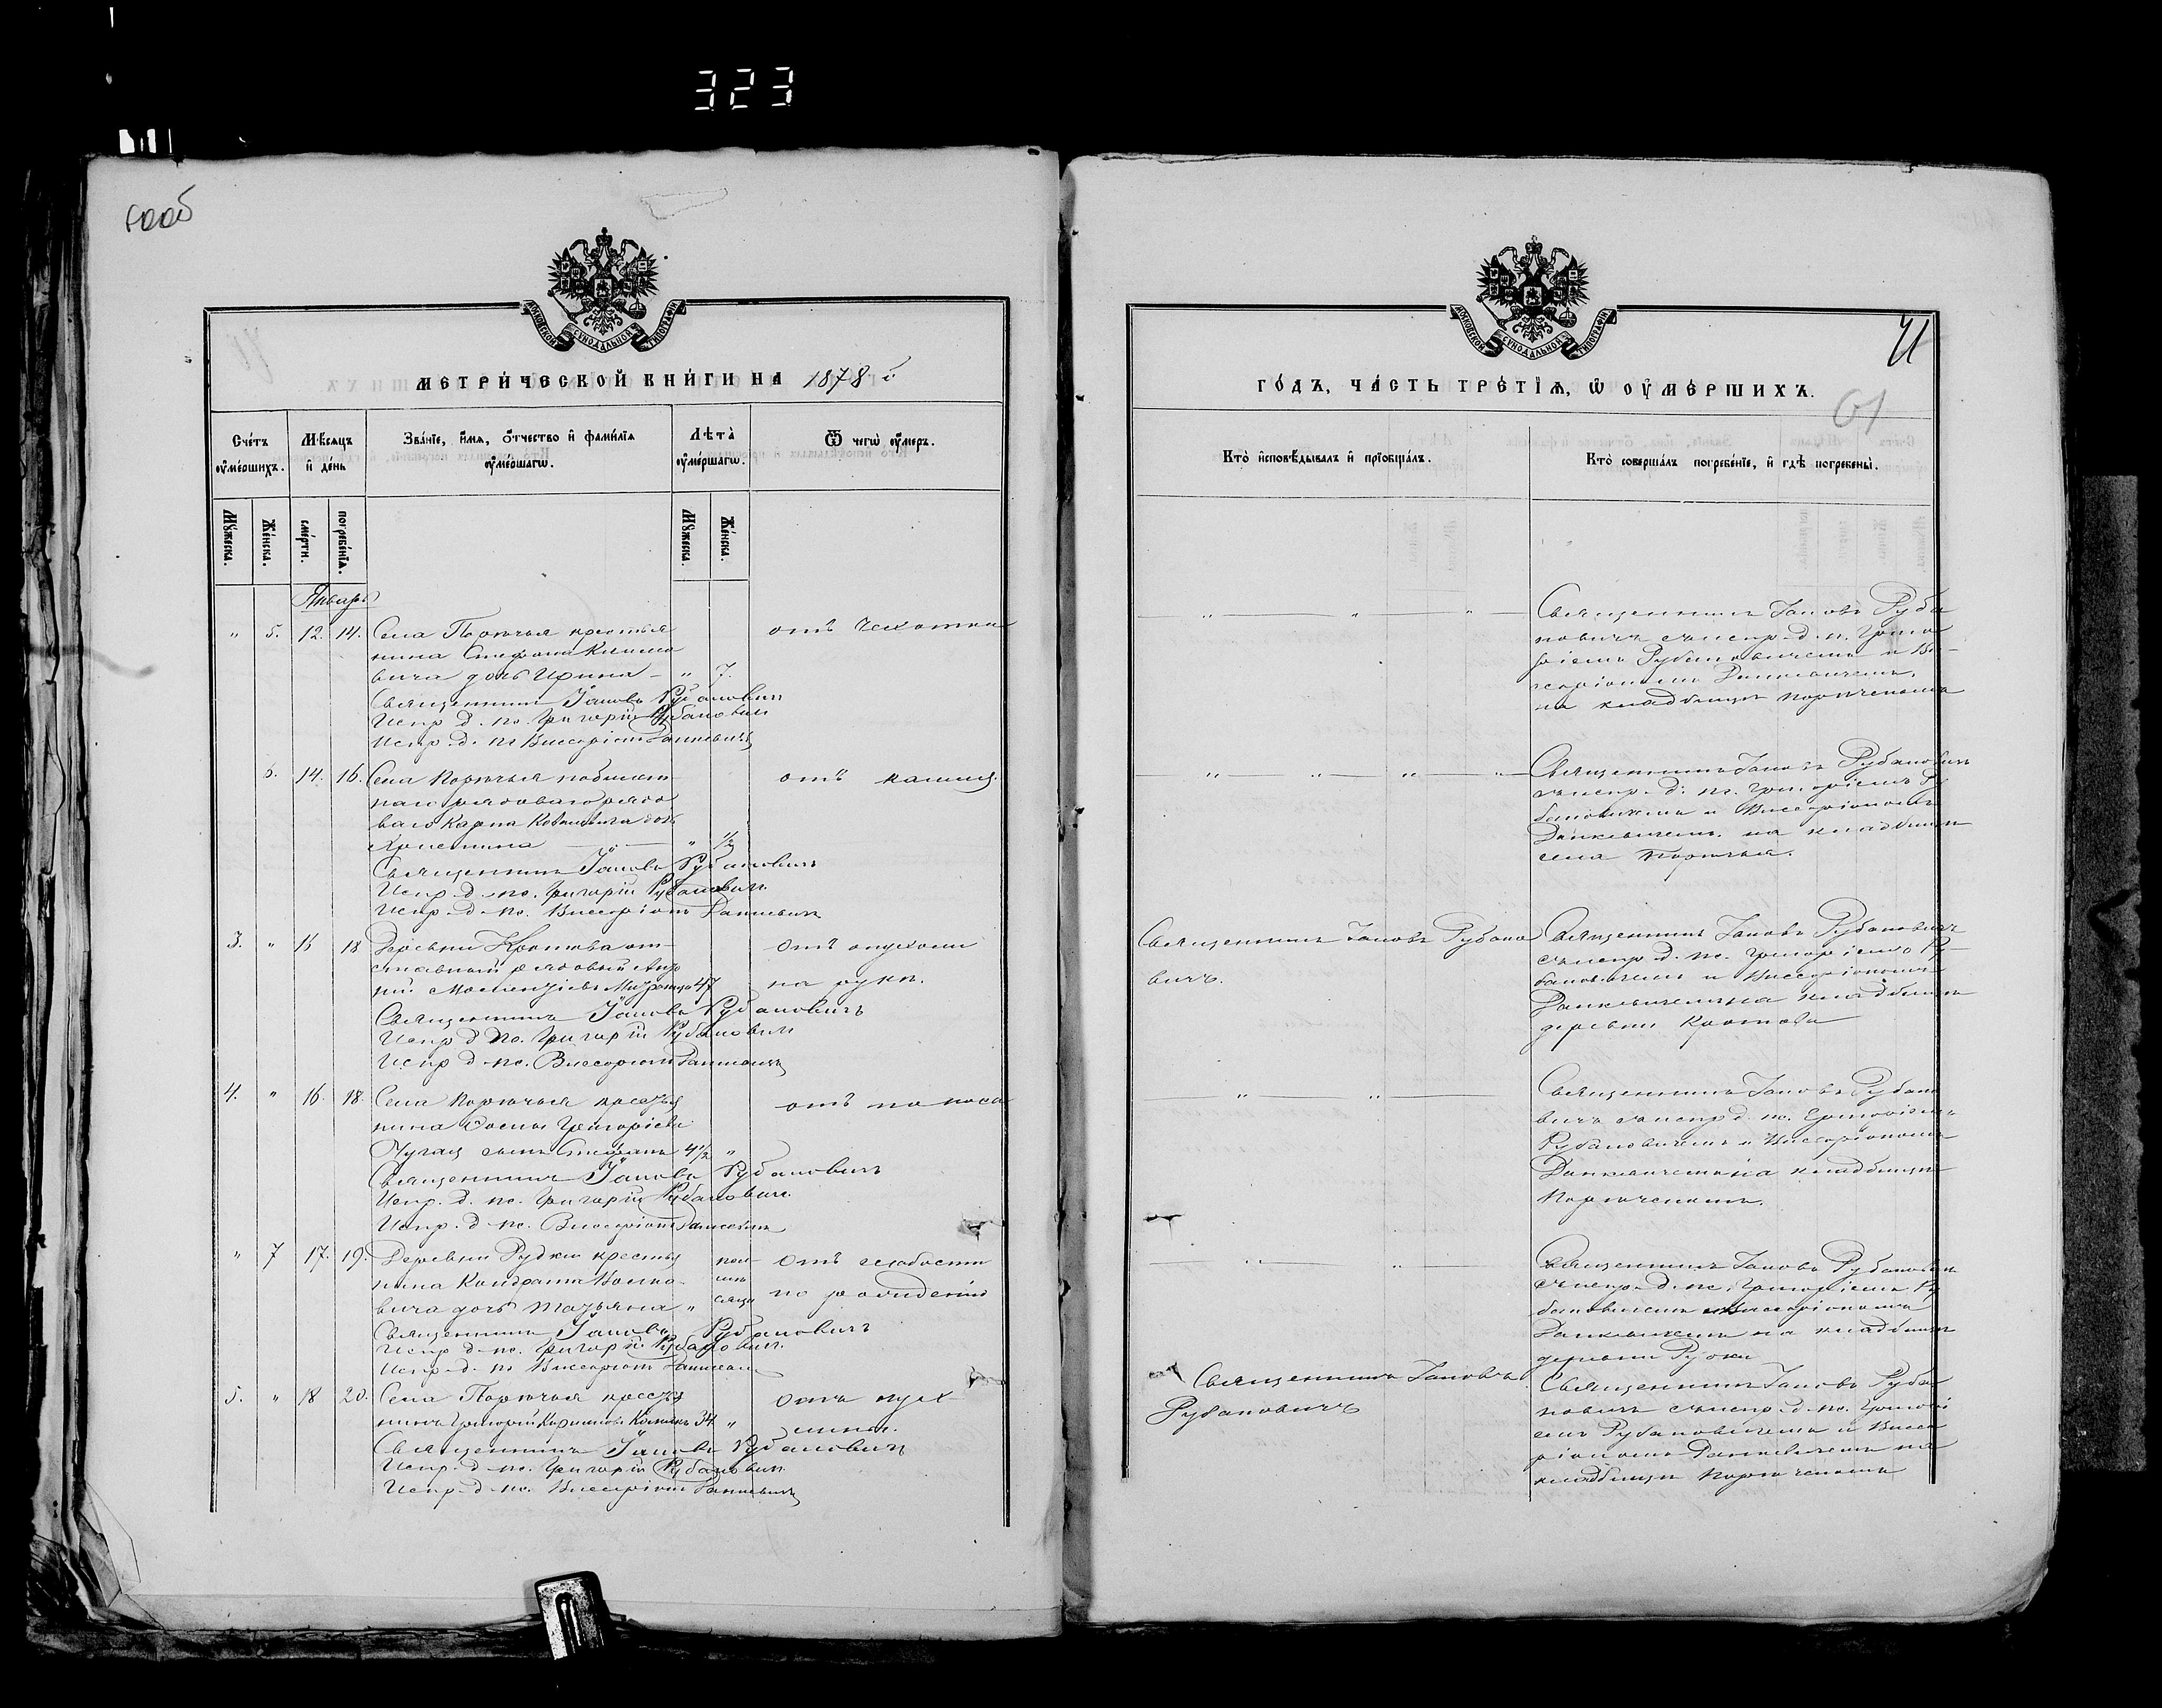 323
МОСКОВСКОЙ СѴНОДАЛЬНОЙ ТИПОГРАФІИ
МЕТРИ́ЧЕСКОЙ КНИ́ГИ НА 1878 й
Сче́тъ ᲂу҆ме́ршихъ.
Мѣ́сяцъ и҆ де́нь
Зва́нїе, и҆́мѧ, ѻ҆́тчество и҆ фами́лїѧ ᲂу҆ме́ршагѡ.
Лѣ́та ᲂу҆ме́ршагѡ.
Ѿ чегѡ̀ ᲂу҆́меръ.
Мꙋ́жеска.
Же́нска.
сме́рти.
погребе́нїѧ.
Мꙋ́жеска.
Же́нска.
Январь
" 5. 12. 14. Села Порѣчья крестья отъ чахотки
нина Стефана
вича дочь Ирина " 7.
Священникъ Іаковъ Рубановичъ
Испр. д. пс. Григорій Рубановичъ
Испр. д. пс. Виссаріонъ Данкевичъ
6. 14. 16. Села Порѣчья отъ кашля
наго рядового рядо
ваго Карпа дочь
Христина " 1/2
Священникъ Іаковъ Рубановичъ
Испр. д. пс. Григорій Рубановичъ
Испр. д. пс. Виссаріонъ Данкевичъ
3. " 16 18 Деревни Кротова от отъ опухоли
ставный рядовый
47 на рукѣ.
Священникъ Іаковъ Рубановичъ
Испр. д. пс. Григорій Рубановичъ
Испр. д. пс. Виссаріонъ Данкевичъ
4. " 16. 18. Села Порѣчья крестья отъ поноса
нина Григоріева
сынъ Стефанъ 4 1/2 "
Священникъ Іаковъ Рубановичъ
Испр. д. пс. Григорій Рубановичъ
Испр. д. пс. Виссаріонъ Данкевичъ
" 7 17. 19. Деревни Рудки крестья отъ слабости
нина Кондрата
вича дочь Татьяна " по рожденіи
Священникъ Іаковъ Рубановичъ
Испр. д. пс. Григорій Рубановичъ
Испр. д. пс. Виссаріонъ Данкевичъ
5. " 18 20. Села Порѣчья крестья отъ
нинъ Григорій 34 "
Священникъ Іаковъ Рубановичъ
Испр. д. пс. Григорій Рубановичъ
Испр. д. пс. Виссаріонъ Данкевичъ
МОСКОВСКОЙ СѴНОДАЛЬНОЙ ТИПОГРАФІИ
61
ГО́ДЪ, ЧА́СТЬ ТРЕ́ТЇѦ, Ѡ҆ ᲂУ҆МЕ́РШИХЪ.
Кто̀ и҆сповѣ́дывалъ и҆ прїѡбща́лъ.
Кто̀ соверша́лъ погребе́нїе, и҆ гдѣ̀ погребены̀.
Священникъ Іаковъ Руба
новичъ съ испр. д. пс. Григо
ріемъ Рубановичемъ и Вис
саріономъ Данкевичемъ,
на кладбищѣ порѣчскомъ
Священникъ Іаковъ Рубановичъ
съ испр. д. пс. Григоріемъ Ру
бановичемъ и Виссаріономъ
Данкевичемъ на кладбищѣ
села Порѣчья.
Священникъ Іаковъ Рубано
вичъ.
Священникъ Іаковъ Рубановичъ
съ испр. д. пс. Григоріемъ Ру
бановичемъ и Виссаріономъ
Данкевичемъ на кладбищѣ
деревни Кротова
Священникъ Іаковъ Рубано
вичъ съ испр. д. пс. Григоріемъ
Рубановичемъ и Виссаріономъ
Данкевичемъ на кладбищѣ
Порѣчскомъ.
Священникъ Іаковъ Рубановичъ
съ испр. д. пс. Григоріемъ Ру
бановичемъ и Виссаріономъ
Данкевичемъ на кладбищѣ
деревни Рудки
Священникъ Іаковъ
Рубановичъ
Священникъ Іаковъ Руба
новичъ съ испр. д. пс. Григорі
емъ Рубановичемъ и Висса
ріономъ Данкевичемъ на
кладбищѣ Порѣчскомъ